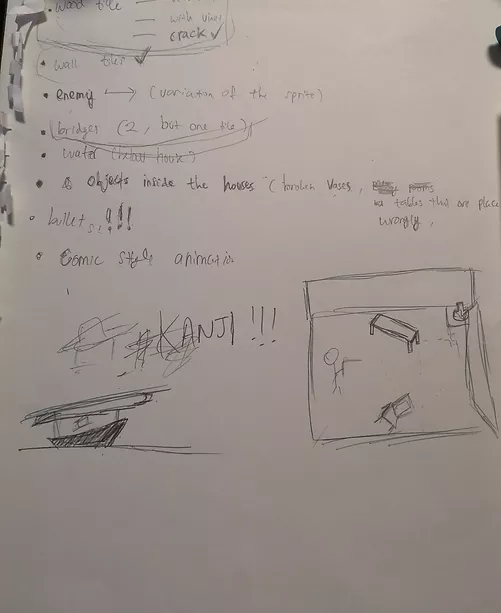 • wood tile
— with vines
— crack ✓
• wall tiles ✓
• enemy → (variation of the sprite)
• bridges (2, but one tile)
• water (below house)
• Objects inside the houses (broken vases,
tables that are place
wrongly,
• bullets!!!
• Comic style animation
#KANJI!!!